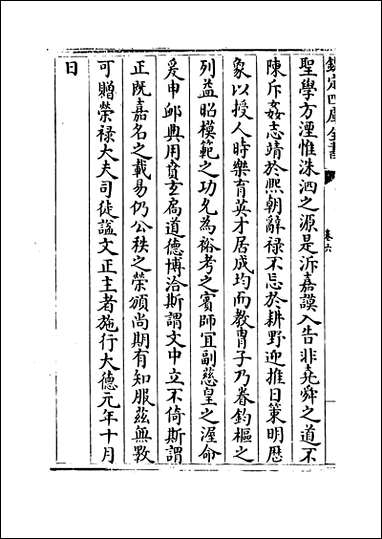 欽定四庫全書
卷六
聖學方湮惟洙泗之源是泝嘉謨入告非堯舜之道不
陳斥姦志靖於熙朝辭祿不忘於耕野迎推日策明厯
象以授人時樂育英才居成均而教胄子乃眷鈞樞之
列益昭模範之功允為裕考之賓師宜副慈皇之渥命
爰申邺典用賁玄扃道德博洽斯謂文中立不倚斯謂
正既嘉名之載易仍公秩之榮頒尚期有知服兹無斁
可贈榮禄大夫司徒諡文正主者施行大德元年十月
日